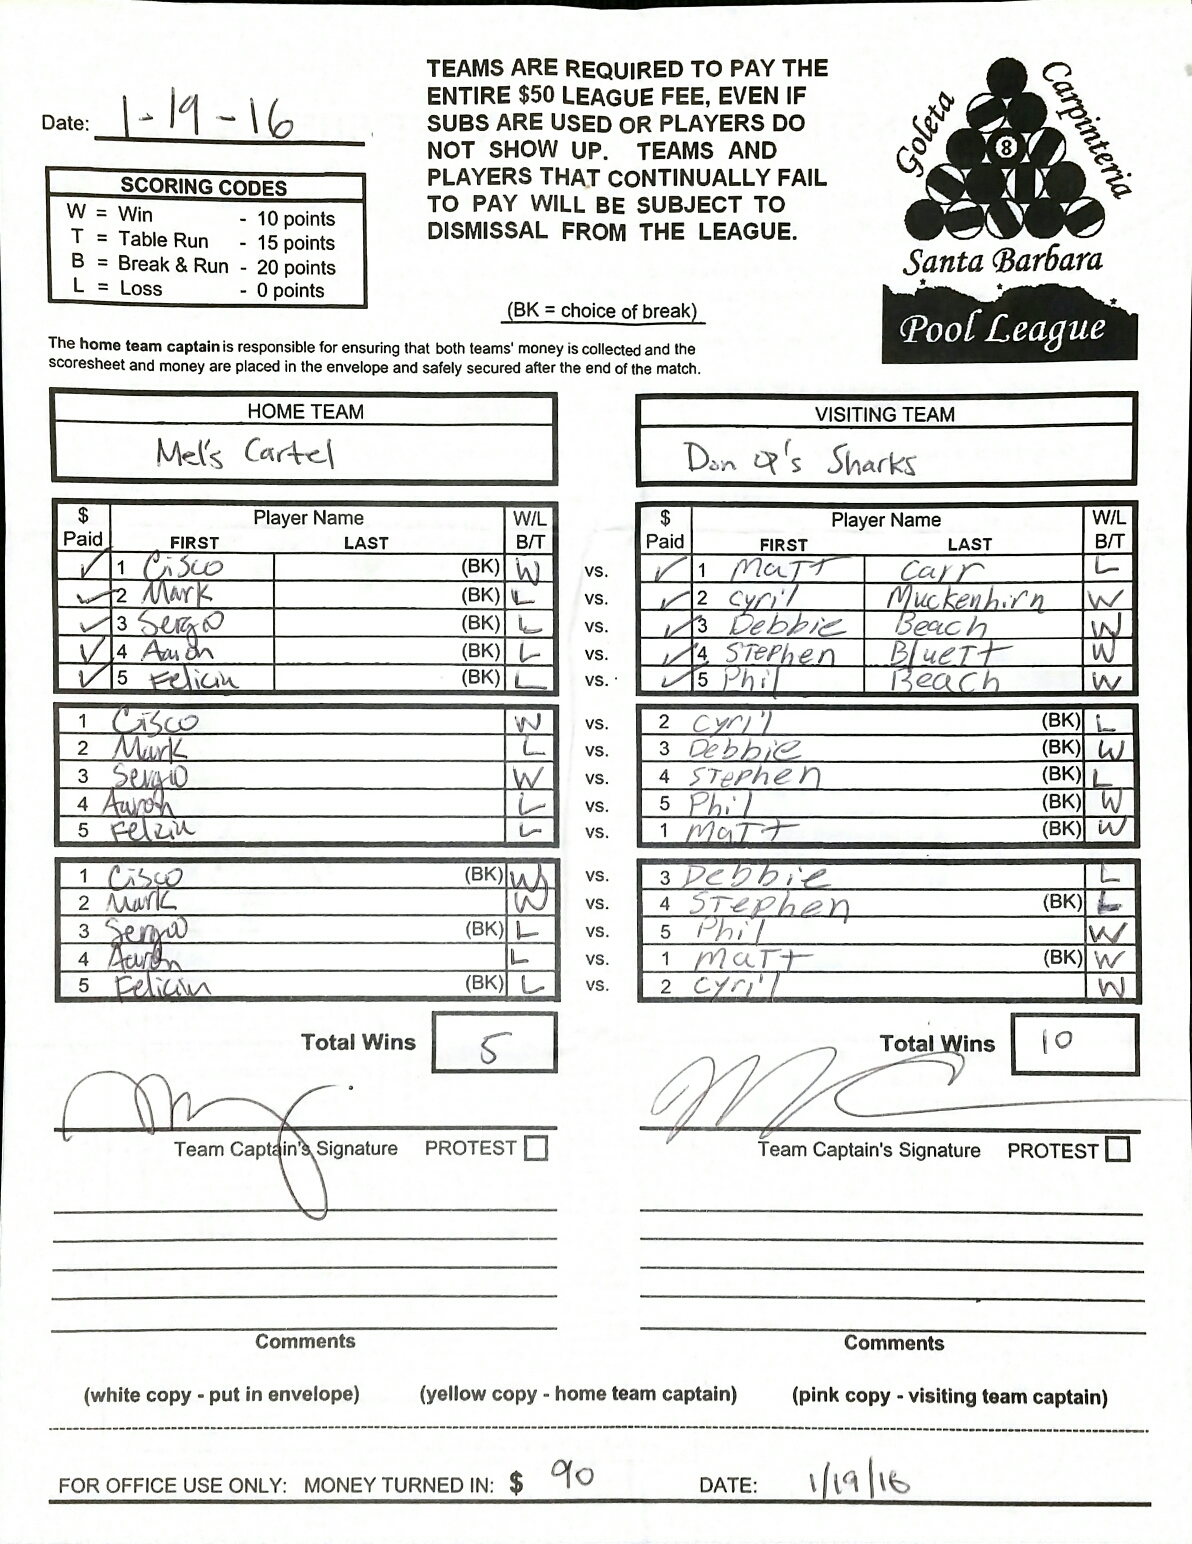 Date: 1-19-16
TEAMS ARE REQUIRED TO PAY THE
ENTIRE $50 LEAGUE FEE, EVEN IF
SUBS ARE USED OR PLAYERS DO
NOT SHOW UP. TEAMS AND
PLAYERS THAT CONTINUALLY FAIL
TO PAY WILL BE SUBJECT TO
DISMISSAL FROM THE LEAGUE.
Goleta
Carpinteria
8
Santa Barbara
Pool League
SCORING CODES
W = Win - 10 points
T = Table Run - 15 points
B = Break & Run - 20 points
L = Loss - 0 points
(BK = choice of break)
The home team captain is responsible for ensuring that both teams' money is collected and the
scoresheet and money are placed in the envelope and safely secured after the end of the match.
HOME TEAM VISITING TEAM
Mel's Cartel Don Q's Sharks
$ Paid Player Name FIRST LAST W/L B/T $ Paid Player Name FIRST LAST W/L B/T
✓ 1 Cisco (BK) W vs. ✓ 1 Matt Carr L
✓ 2 Mark (BK) L vs. ✓ 2 Cyril Muckenhirn W
✓ 3 Sergio (BK) L vs. ✓ 3 Debbie Beach W
✓ 4 Aaron (BK) L vs. ✓ 4 Stephen Bluett W
✓ 5 Felicin (BK) L vs. ✓ 5 Phil Beach W
1 Cisco W vs. 2 Cyril (BK) L
2 Mark L vs. 3 Debbie (BK) W
3 Sergio W vs. 4 Stephen (BK) L
4 Aaron L vs. 5 Phil (BK) W
5 L vs. 1 Matt (BK) W
1 Cisco (BK) W vs. 3 Debbie L
2 Mark W vs. 4 Stephen (BK) L
3 Sergio (BK) L vs. 5 Phil W
4 Aaron L vs. 1 Matt (BK) W
5 Felicin (BK) L vs. 2 Cyril W
Total Wins 5 Total Wins 10
Team Captain's Signature PROTEST Team Captain's Signature PROTEST
Comments Comments
(white copy - put in envelope) (yellow copy - home team captain) (pink copy - visiting team captain)
FOR OFFICE USE ONLY: MONEY TURNED IN: $ 90 DATE: 1/19/16